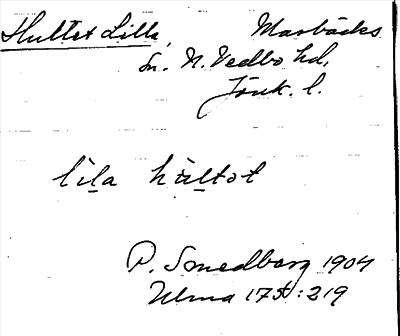 Hultet Lilla, Marbäcks
Sn. N. Vedbo hd,
Jönk. l.
lila hultet
P. Smedberg 1904
Ulma 175:219